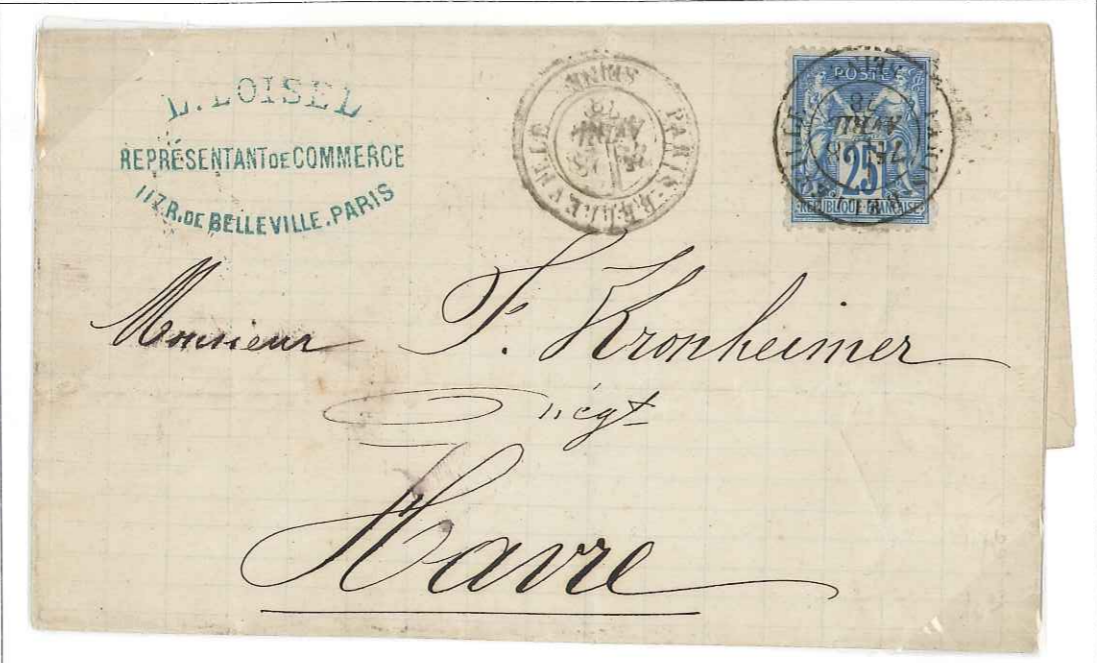 L. LOISEL
REPRÉSENTANT DE COMMERCE
117 R. DE BELLEVILLE. PARIS
PARIS-BELLEVILLE
SEINE
AVRIL
78
POSTE
25
REPUBLIQUE FRANÇAISE
PARIS
SEINE
AVRIL
78
Monsieur F. Kronheimer
négt
Havre